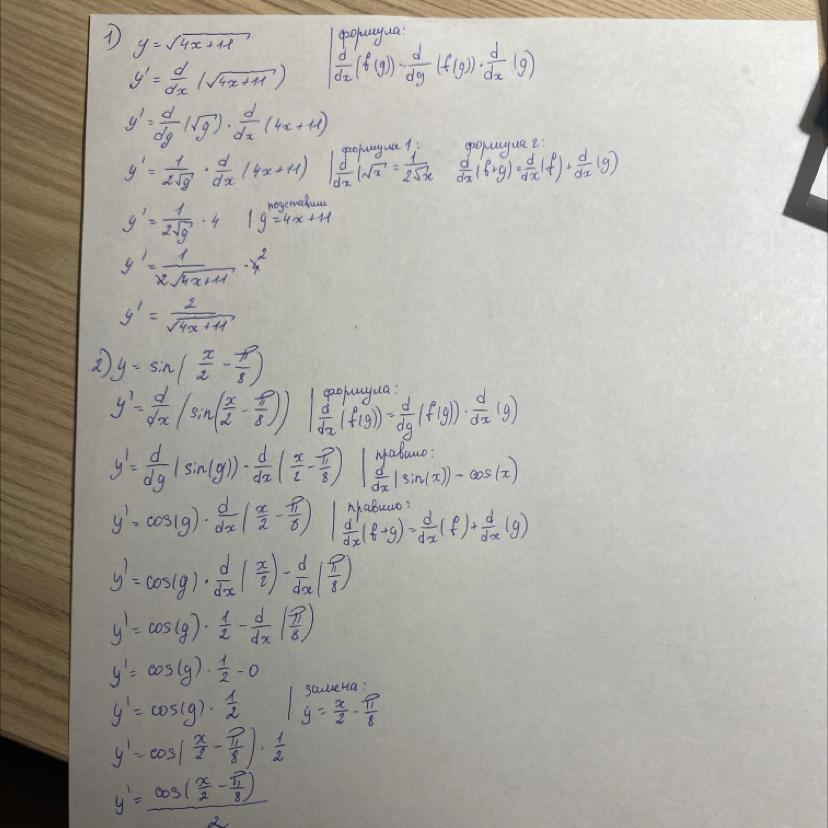 1) y = √4x+11 | формула:
y' = d/dx (√4x+11) | d/dx (f(g)) = d/dg (f(g)) · d/dx (g)
y' = d/dg (√g) · d/dx (4x+11)
y' = 1/2√g · d/dx (4x+11) | формула 1: d/dx (√x = 1/2√x формула 2: d/dx (f+g) = d/dx (f) + d/dx (g)
y' = 1/2√g · 4 | подставим g = 4x+11
y' = 1/2√4x+11 · 4 2
y' = 2/√4x+11
2) y = sin(x/2 - π/8)
y' = d/dx (sin(x/2 - π/8)) | формула: d/dx (f(g)) = d/dg (f(g)) · d/dx (g)
y' = d/dg (sin(g)) · d/dx (x/2 - π/8) | правило: d/dx (sin(x)) = cos(x)
y' = cos(g) · d/dx (x/2 - π/8) | правило: d/dx (f+g) = d/dx (f) + d/dx (g)
y' = cos(g) · d/dx (x/2) - d/dx (π/8)
y' = cos(g) · 1/2 - d/dx (π/8)
y' = cos(g) · 1/2 - 0
y' = cos(g) · 1/2 | замена: g = x/2 - π/8
y' = cos(x/2 - π/8) · 1/2
y' = cos(x/2 - π/8)/2